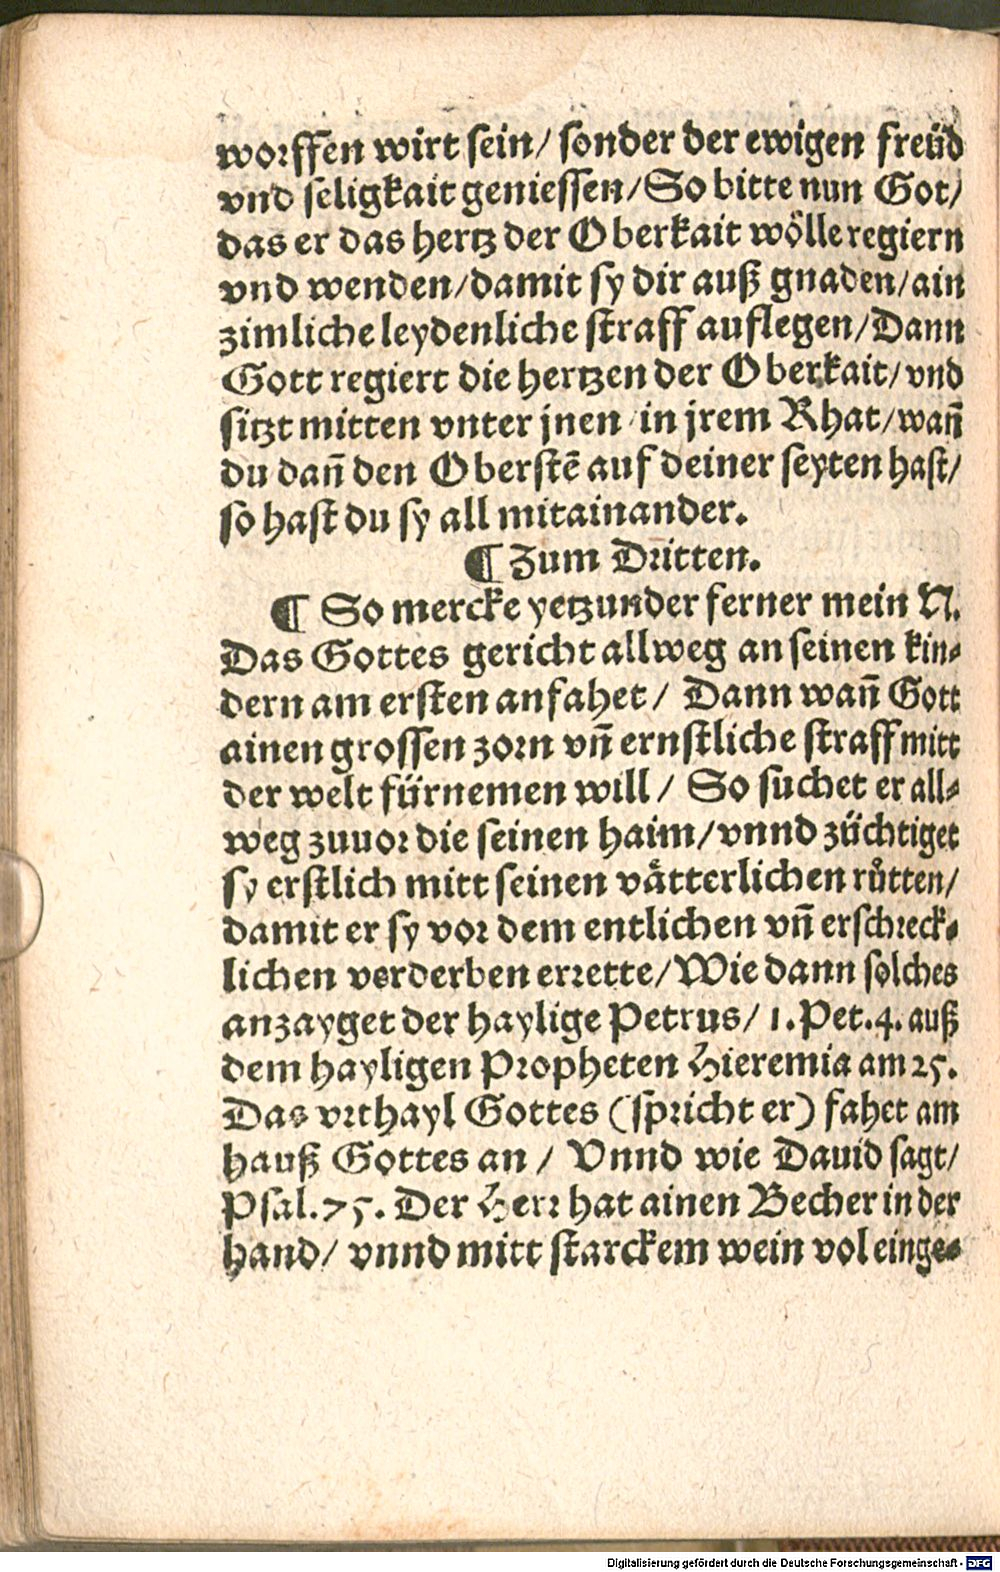 worffen wirt sein/ sonder der ewigen freüd
vnd seligkait geniessen/ So bitte nun Got/
das er das hertz der Oberkait wölle regiern
vnd wenden/ damit sy dir auß gnaden/ ain
zimliche leydenliche straff auflegen/ Dann
Gott regiert die hertzen der Oberkait/ vnd
sitzt mitten vnter jnen in jrem Rhat/ wañ
du dañ den Oberstē auf deiner seyten hast/
so hast du sy all mitainander.
¶ Zum Dritten.
¶ So mercke yetzunder ferner mein N.
Das Gottes gericht allweg an seinen kin-
dern am ersten anfahet/ Dann wañ Gott
ainen grossen zorn vñ ernstliche straff mitt
der welt fürnemen will/ So suchet er all-
weg zuuor die seinen haim/ vnnd züchtiget
sy erstlich mitt seinen vätterlichen růtten/
damit er sy vor dem entlichen vñ erschreck-
lichen verderben errette/ Wie dann solches
anzayget der haylige Petrus/ 1. Pet. 4. auß
dem hayligen Propheten Hieremia am 25.
Das vrthayl Gottes (spricht er) fahet am
hauß Gottes an/ Vnnd wie Dauid sagt/
Psal. 75. Der Herr hat ainen Becher in der
hand/ vnnd mitt starckem wein vol einge-
Digitalisierung gefördert durch die Deutsche Forschungsgemeinschaft - DFG